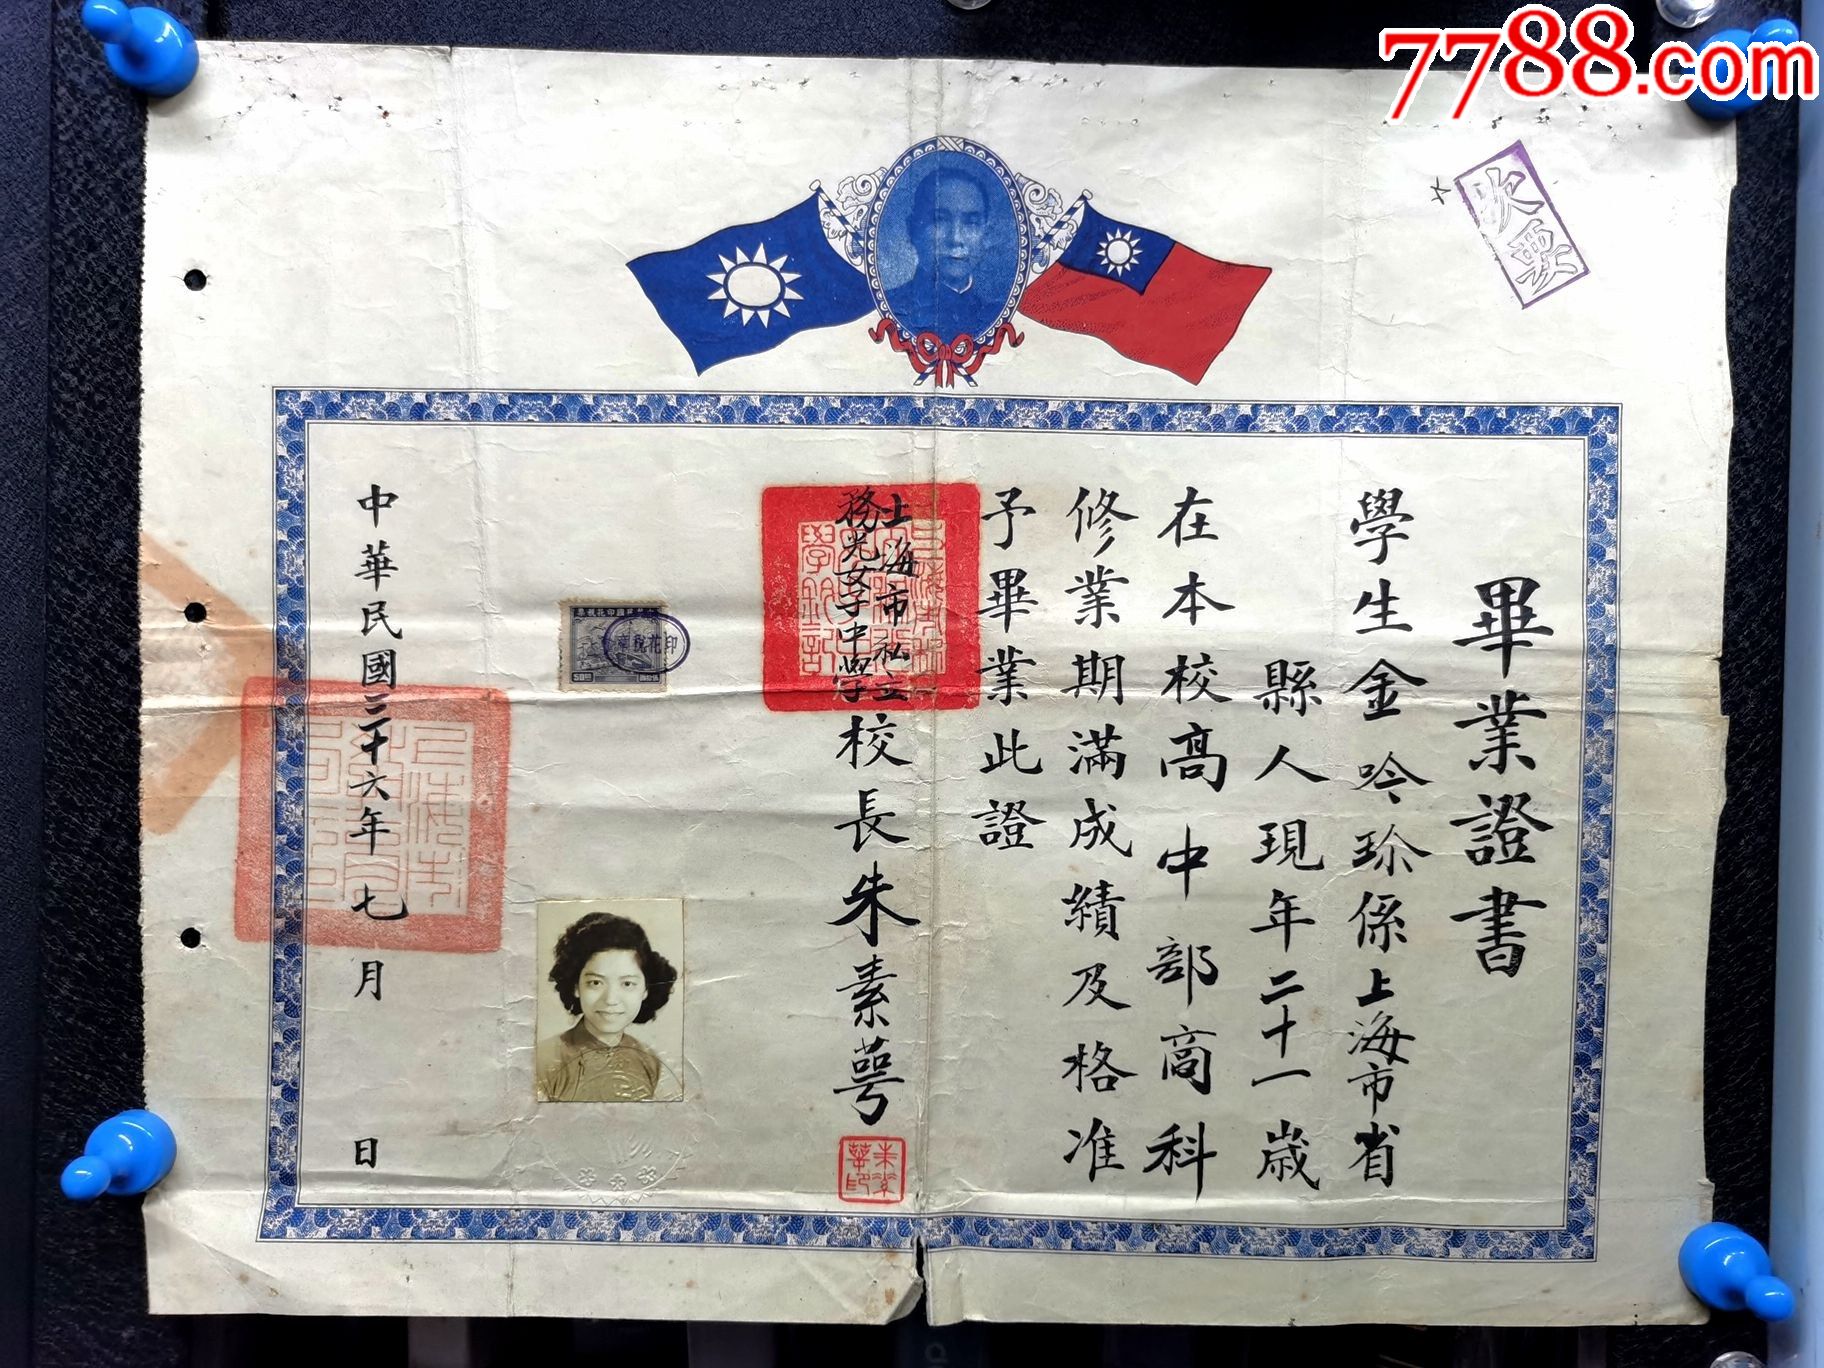 7788.com
次要
畢業證書
學生金吟珍係上海市省
縣人現年二十一歲
在本校高中部商科
修業期滿成績及格准
予畢業此證
上海市私立
務光女子中學校長朱素萼
朱素萼印
中華民國印花稅票
印花稅
50
中華民國三十六年七月 日